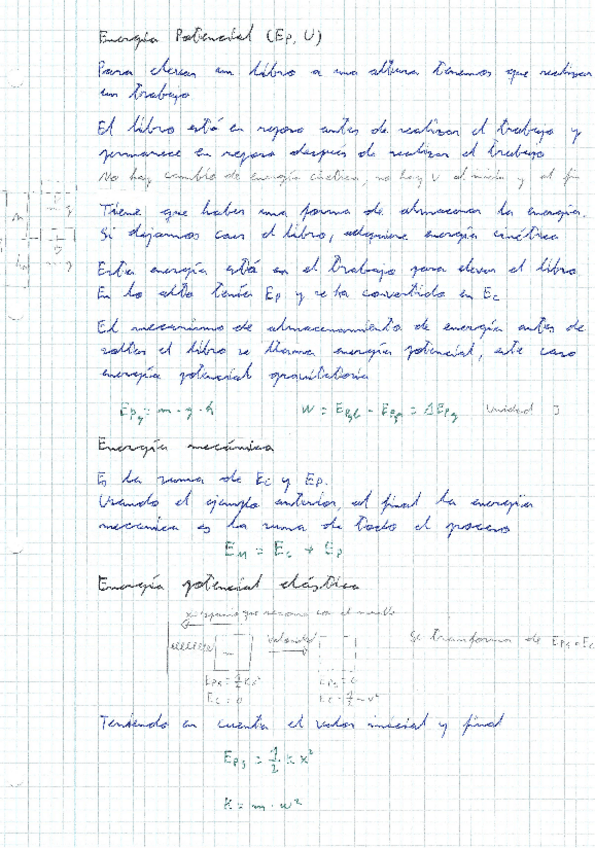 Energía Potencial (Ep, U)
Para elevar un libro a una altura tenemos que realizar
un trabajo
El libro está en reposo antes de realizar el trabajo y
permanece en reposo después de realizar el trabajo
No hay cambio de energía cinética, no hay v al inicio y al fin
Tiene que haber una forma de almacenar la energía.
Si dejamos caer el libro, adquiere energía cinética
Esta energía está en el trabajo para elevar el libro.
En lo alto tenía Ep y se ha convertido en Ec
El mecanismo de almacenamiento de energía antes de
soltar el libro se llama energía potencial, este caso
energía potencial gravitatoria
Epg = m · g · h
W = Epgf - Epgo = ΔEpg Unidad J
Energía mecánica
Es la suma de Ec y Ep.
Usando el ejemplo anterior, al final la energía
mecánica es la suma de todo el proceso
EM = Ec + Ep
Energía potencial elástica
x: espacio que reacciona con el muelle
Velocidad
Se transforma de Epe a Ec
Epe = 1/2 kx²
Epe = 0
Ec = 0
Ec = 1/2 mv²
Teniendo en cuenta el valor inicial y final
Epg = 1/2 k x²
K = m · w²